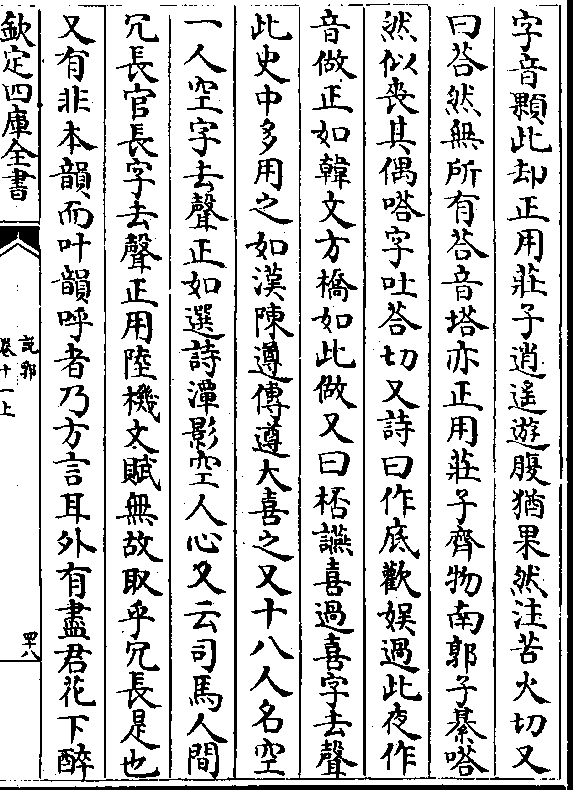 字音顆此却正用莊子逍遙遊腹猶果然注苦火切又
曰荅然無所有荅音塔亦正用莊子齊物南郭子綦嗒
然似喪其偶嗒字吐荅切又詩曰作底歡娛過此夜作
音做正如韓文方橋如此做又曰桮讌喜過喜字去聲
此史中多用之如漢陳遵傳遵大喜之又十八人名空
一人空字去聲正如選詩潭影空人心又云司馬人間
冗長官長字去聲正用陸機文賦無故取乎冗長是也
又有非本韻而叶韻呼者乃方言耳外有盡君花下醉
欽定四庫全書
說郛
卷十一上
四八